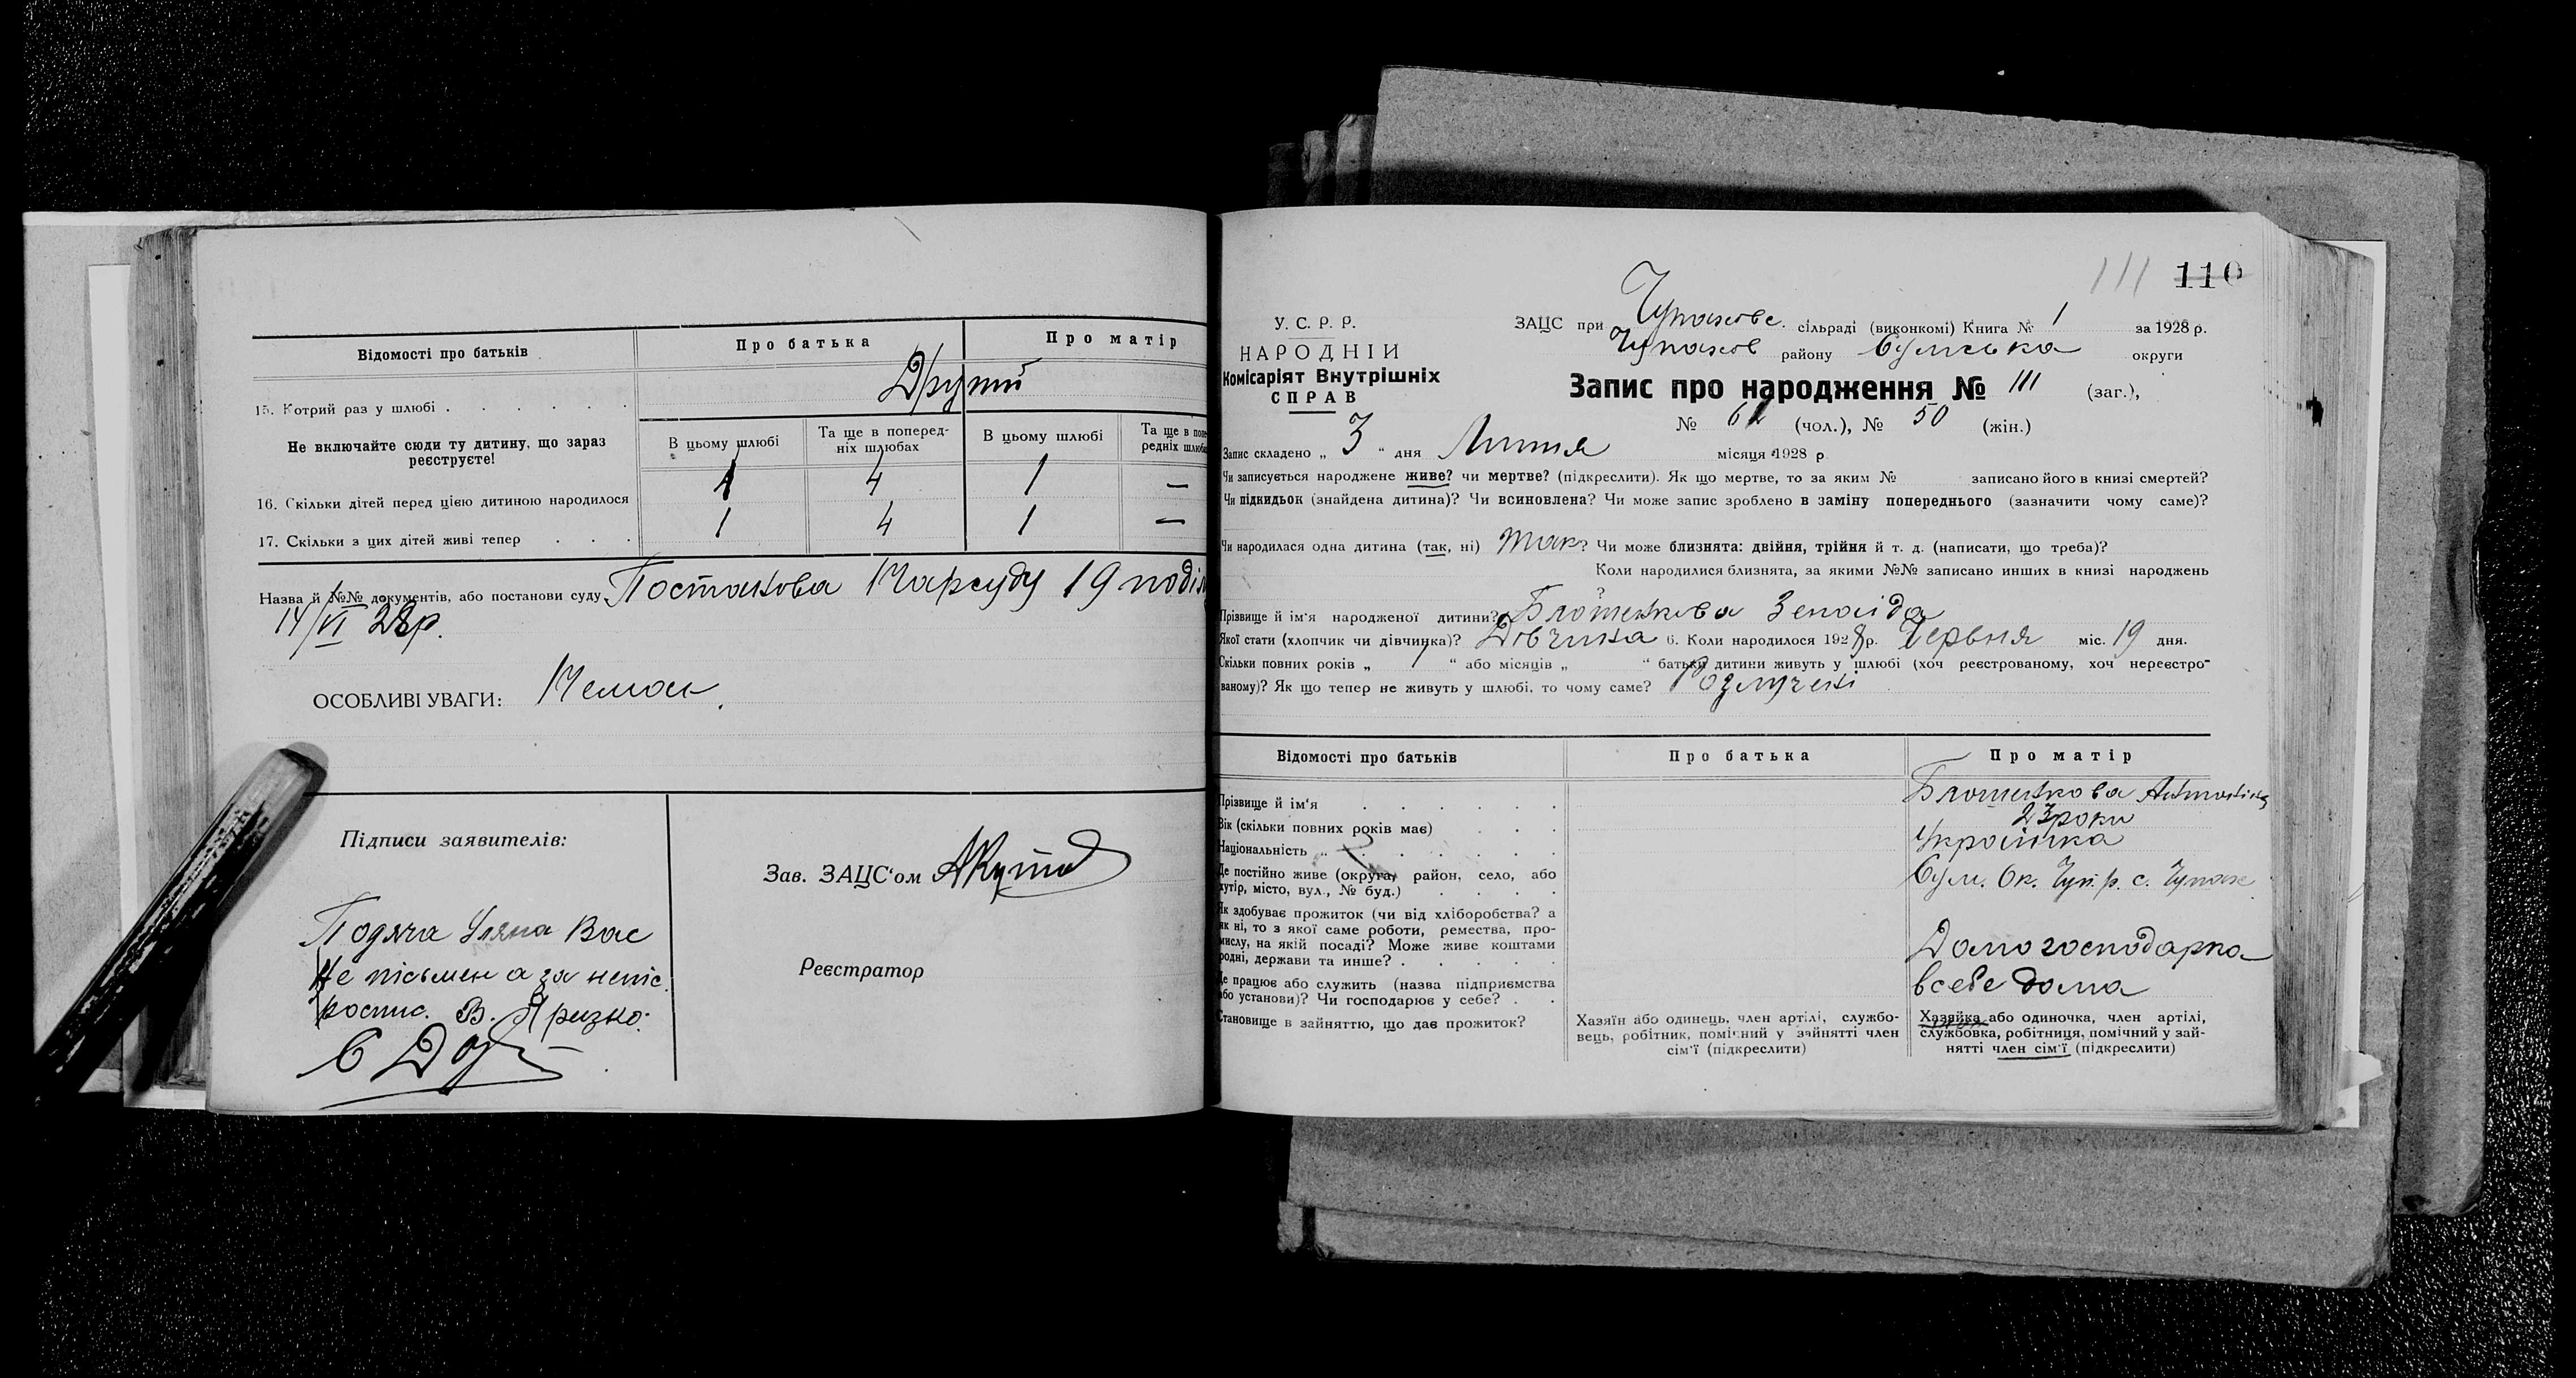 Відомості про батьків
Про батька
Про матір
15. Котрий раз у шлюбі . . . . . .
Другий
Не включайте сюди ту дитину, що зараз реєструєте!
В цьому шлюбі
Та ще в поперед-
ніх шлюбах
В цьому шлюбі
Та ще в попе
редніх шлюба
16. Скільки дітей перед цією дитиною народилося
1 4 1 —
17. Скільки з цих дітей живі тепер . . .
1 4 1 —
Назва й №№ документів, або постанови суду Постанова Нарсуду 19
14/VI 28р.
ОСОБЛИВІ УВАГИ: Немає.
Підписи заявителів:
Зав. ЗАЦС'ом
Уляна Вас
Не пісьмен а за непіс.
роспис. В.
Реєстратор
111 110
У. С. Р. Р.
НАРОДНІЙ
Комісаріят Внутрішніх
СПРАВ
ЗАЦС при Чупахове. сільраді (виконкомі) Книга № 1 за 1928 р.
Чупахов району Сумська округи
Запис про народження № 111 (заг.),
№ 61 (чол.), № 50 (жін.)
Запис складено „ 3 “ дня Липня місяця 1928 р
Чи записується народжене живе? чи мертве? (підкреслити). Як що мертве, то за яким № записано його в книзі смертей?
Чи підкидьок (знайдена дитина)? Чи всиновлена? Чи може запис зроблено в заміну попереднього (зазначити чому саме)?
Чи народилася одна дитина (так, ні) так? Чи може близнята: двійня, трійня й т. д. (написати, що треба)?
Коли народилися близнята, за якими №№ записано инших в книзі народжень
?
Прізвище й ім'я народженої дитини? Блошенкова Зенаіда
Якої стати (хлопчик чи дівчинка)? Дівчина 6. Коли народилося 1928 р. Червня міс. 19 дня.
Скільки повних років „ “ або місяців „ “ батьки дитини живуть у шлюбі (хоч реєстрованому, хоч нереєстро-
ваному)? Як що тепер не живуть у шлюбі, то чому саме? Розлучені
Відомості про батьків
Про батька
Про матір
Прізвище й ім'я . . . . . .
Блошенкова
Вік (скільки повних років має) . . .
23 роки
Національність . . . . . . .
Українка
Де постійно живе (округа, район, село, або
хутір, місто, вул., № буд.) . . . .
Сум. Ок. Чуп. р. с. Чупах
Як здобуває прожиток (чи від хліборобства? а
як ні, то з якої саме роботи, ремества, про-
мислу, на якій посаді? Може живе коштами
родні, держави та инше? . . . . .
Домогосподарка
Де працює або служить (назва підприємства
або установи)? Чи господарює у себе? . .
всебе дома
Становище в зайняттю, що дає прожиток?
Хазяїн або одинець, член артілі, службо-
вець, робітник, помічний у зайнятті член
сім'ї (підкреслити)
Хазяйка або одиночка, член артілі,
службовка, робітниця, помічний у зай-
нятті член сім'ї (підкреслити)